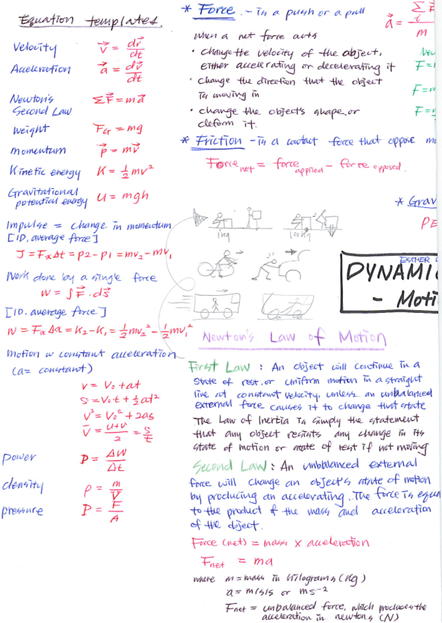 Equation templates.
Velocity v⃗ = dr⃗/dt
Acceleration a⃗ = dv⃗/dt
Newton's Second Law ΣF⃗ = ma⃗
Weight F_G = mg
momentum p⃗ = mv⃗
Kinetic energy K = ½ mv²
Gravitational potential energy U = mgh
Impulse = change in momentum
[1D, average force]
J = FₐΔt = p2 - p1 = mv₂ - mv₁
Work done by a single force
W = ∫F⃗ . ds⃗
[1D. average force]
W = FₐΔa = K₂ - K₁ = ½mv₂² - ½mv₁²
Motion w constant acceleration
(a = constant)
v = v₀ + at
s = v₀t + ½at²
v² = v₀² + 2as
v̄ = u+v/2 = s/t
power P = ΔW/Δt
density ρ = m/V
pressure P = F/A
* Force - is a push or a pull
when a net force acts
• change the velocity of the object,
either accelerating or decelerating it
• change the direction that the object
is moving in
• change the objects shape, or
deform it.
* Friction - is a contact force that oppose
Force net = force applied - force opposed
a⃗ = ΣF/m
F =
F = m
F = m
* Grav
PE
DYNAMIC
- Moti
Newton's Law of Motion
First Law : An object will continue in a
state of rest, or uniform motion in a straight
line at constant velocity, unless an unbalanced
external force causes it to change that state
The Law of Inertia is simply the statement
that any object resists any change in its
state of motion or state of rest if not moving
Second Law : An unbalanced external
force will change an object's state of motion
by producing an accelerating. The force is equa
to the product of the mass and acceleration
of the object.
Force (net) = mass x acceleration
Fnet = ma
where m = mass in kilograms (kg)
a = m/s/s or ms⁻²
Fnet = unbalanced force, which produces the
acceleration in newtons (N)